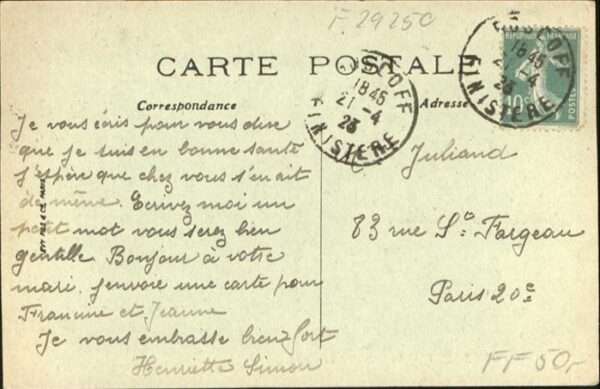 F. 29250
CARTE POSTALE
Correspondance
Adresse
ROSCOFF
18 45
21 - 4
23
FINISTÈRE
ROSCOFF
18 45
21 - 4
23
FINISTÈRE
POSTES
10c
Je vous écris pour vous dire
que je suis en bonne santé
J'espère que chez vous s'en ait
de même. Ecrivez moi un
petit mot vous serez bien
gentille. Bonjour à votre
mari. j'envoie une carte pour
Francine et Jeanne
Je vous embrasse bien fort
Henriette Simon
Juliand
83 rue St Fargeau
Paris 20e
FF 50,-